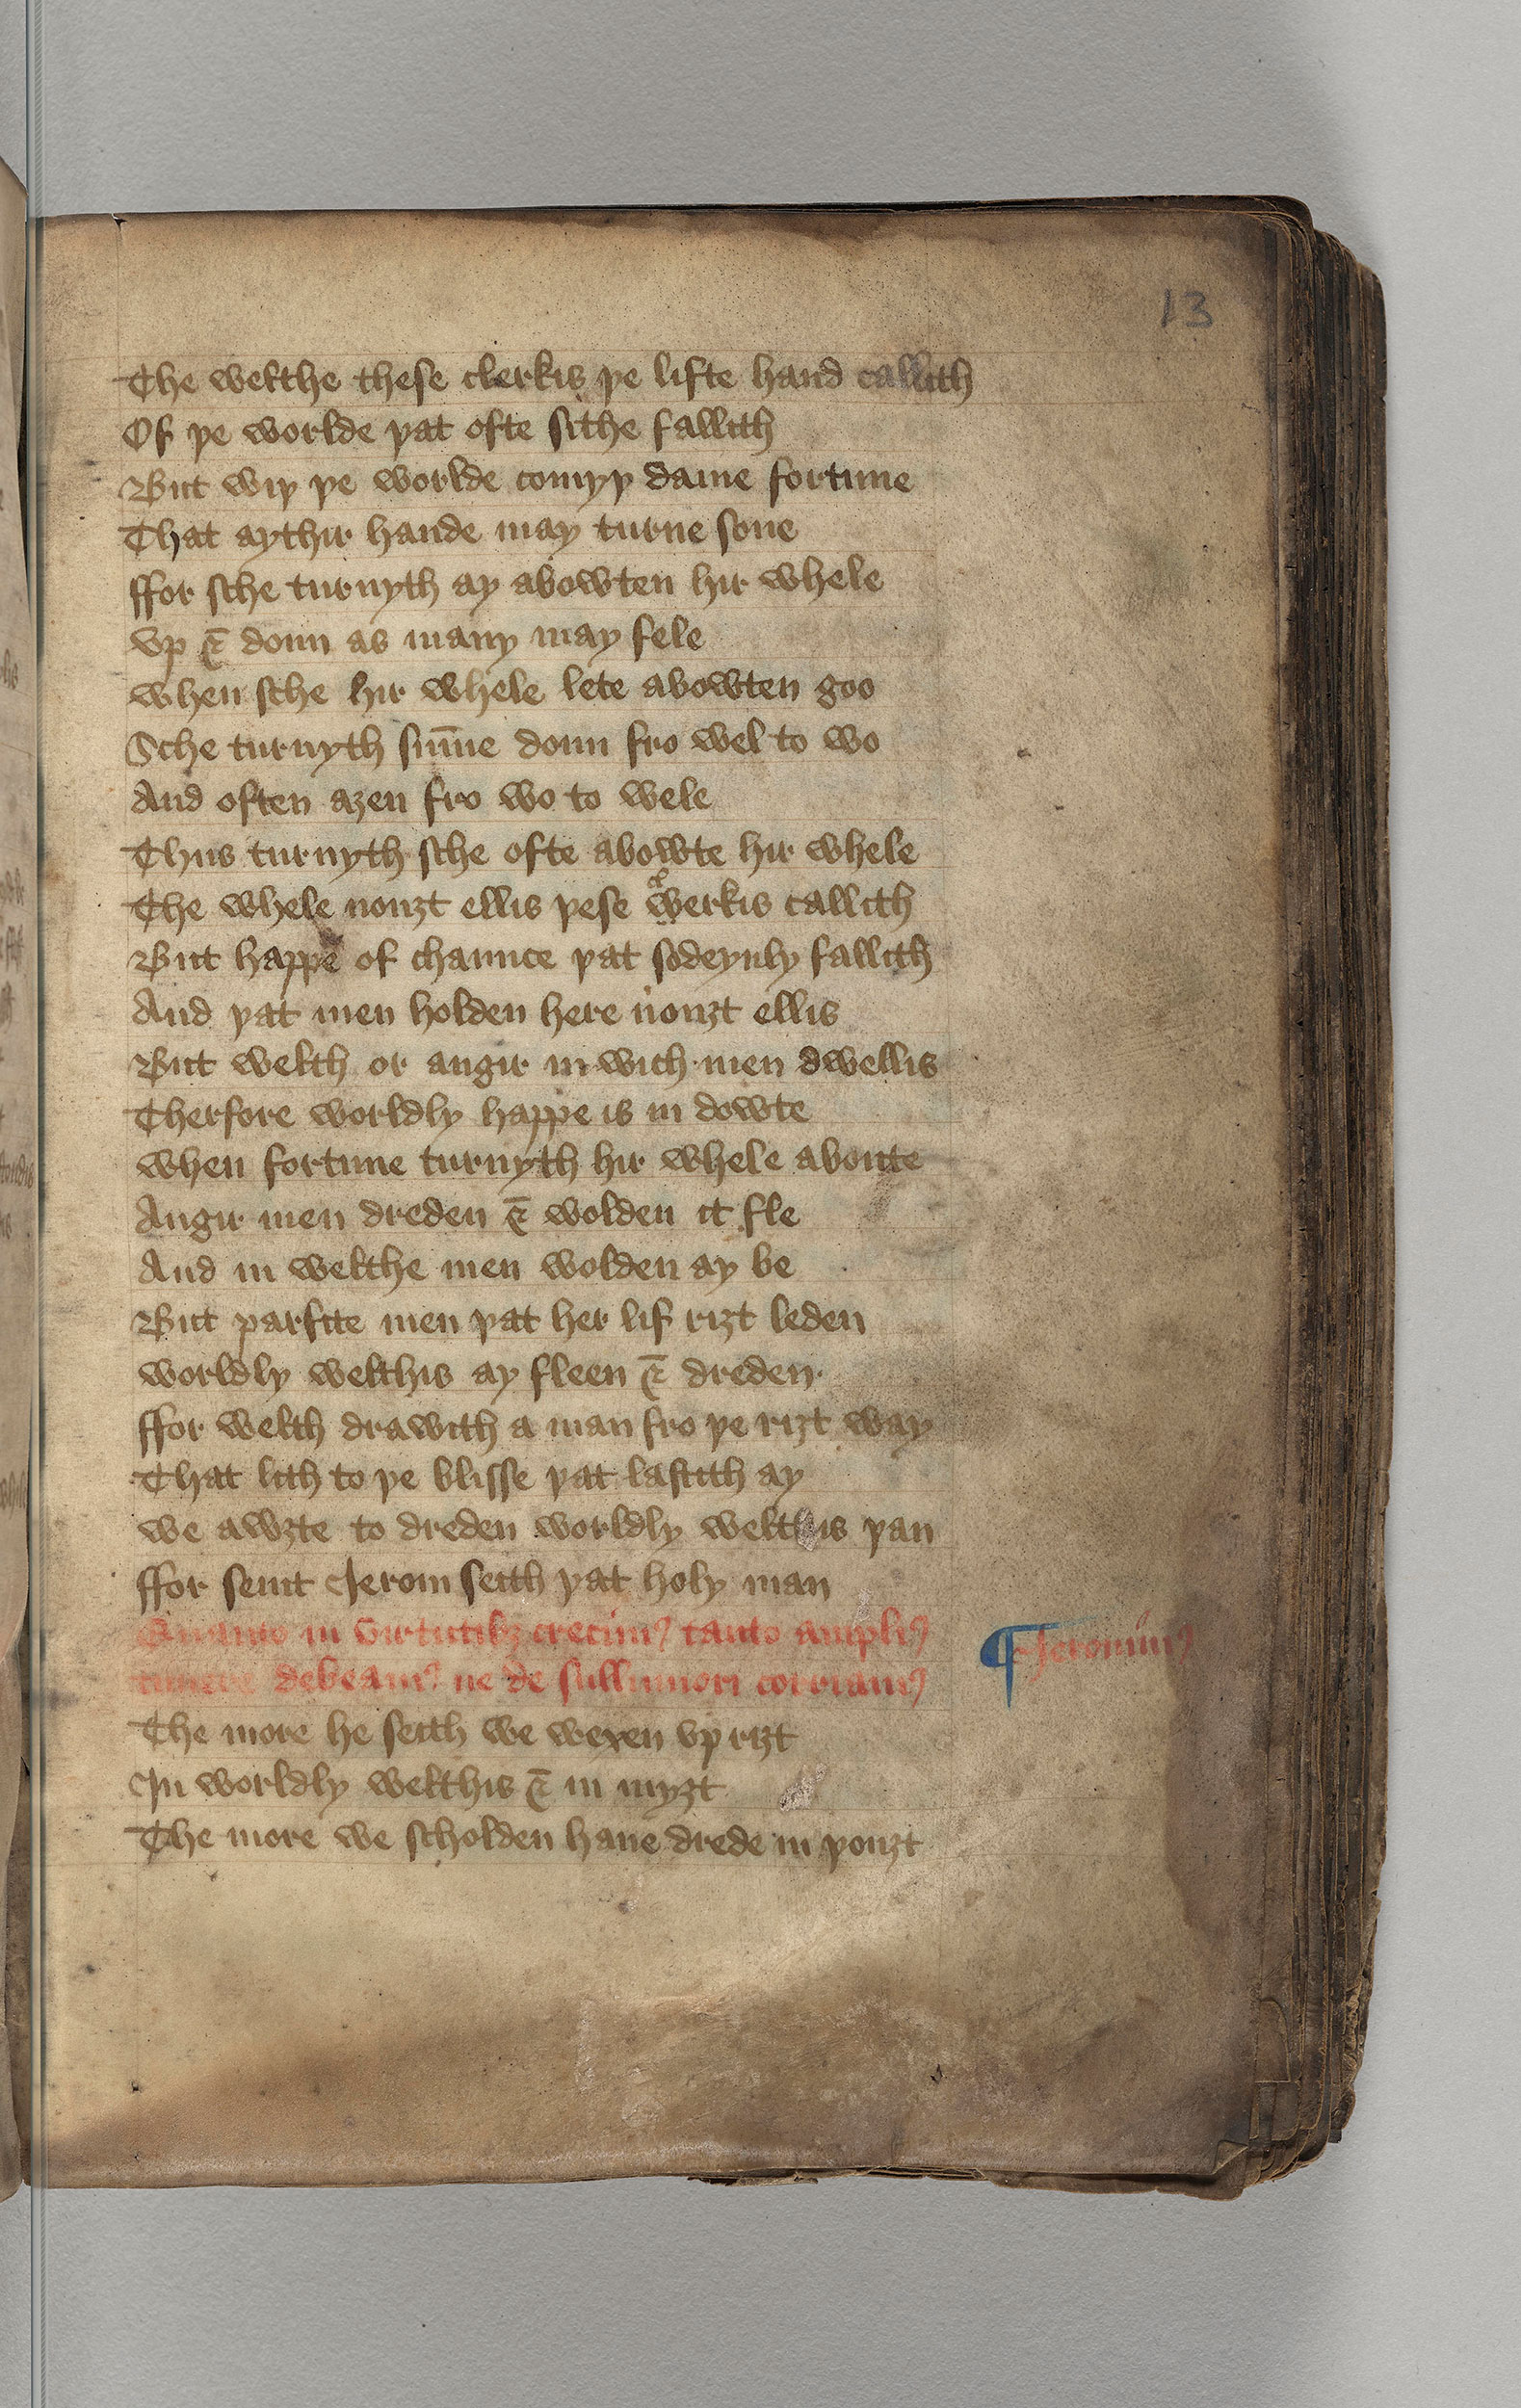 13
The welthe these clerkis þe lifte hand callith
Of þe worlde þat ofte sithe fallith
But wiþ þe worlde comyþ dame fortune
That aythir hande may turne sone
ffor sche turnyth ay abowten hir whele
vp & doun as many may fele
when sche hir whele lete abowten goo
Sche turnyth su̅me doun fro wel to wo
And often aȝen fro wo to wele
Thus turnyth sche ofte abowte hir whele
The whele nouȝt ellis þese werkis callith
But happe of chaunce þat sodeynly fallith
And þat men holden here nouȝt ellis
But welth or angir in wich men dwellis
Therfore worldly happe is in dowte
when fortune turnyth hir whele aboute
Angir men dreden & wolden it fle
And in welthe men wolden ay be
But parfite men þat her lif riȝt leden
worldly welthis ay fleen & dreden
ffor welth drawith a man fro þe riȝt way
That lith to þe blisse þat lastith ay
we awȝte to dreden worldly welthis þan
ffor seint Jerom seith þat holy man
Quanto in virtutibȝ crecimꝰ tanto ampliꝰ
timere debeamꝰ ne de sullimiori corriamꝰ
¶ Jeronimꝰ
The more he seith we wexen vp riȝt
In worldly welthis & in myȝt
The more we scholden haue drede in þouȝt